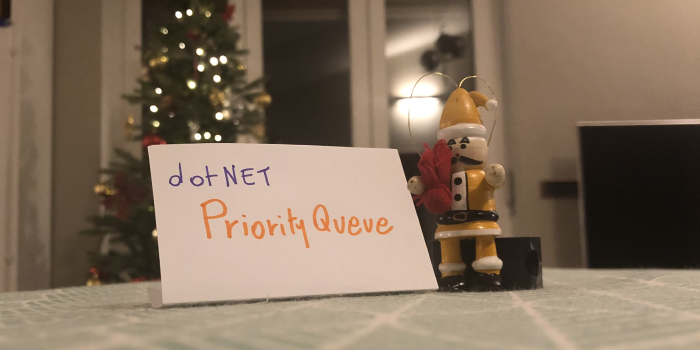 dotNET
Priority Queue